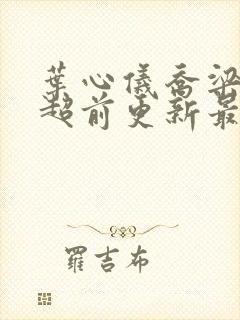 葉心儀喬梁
超前更新最
羅吉布